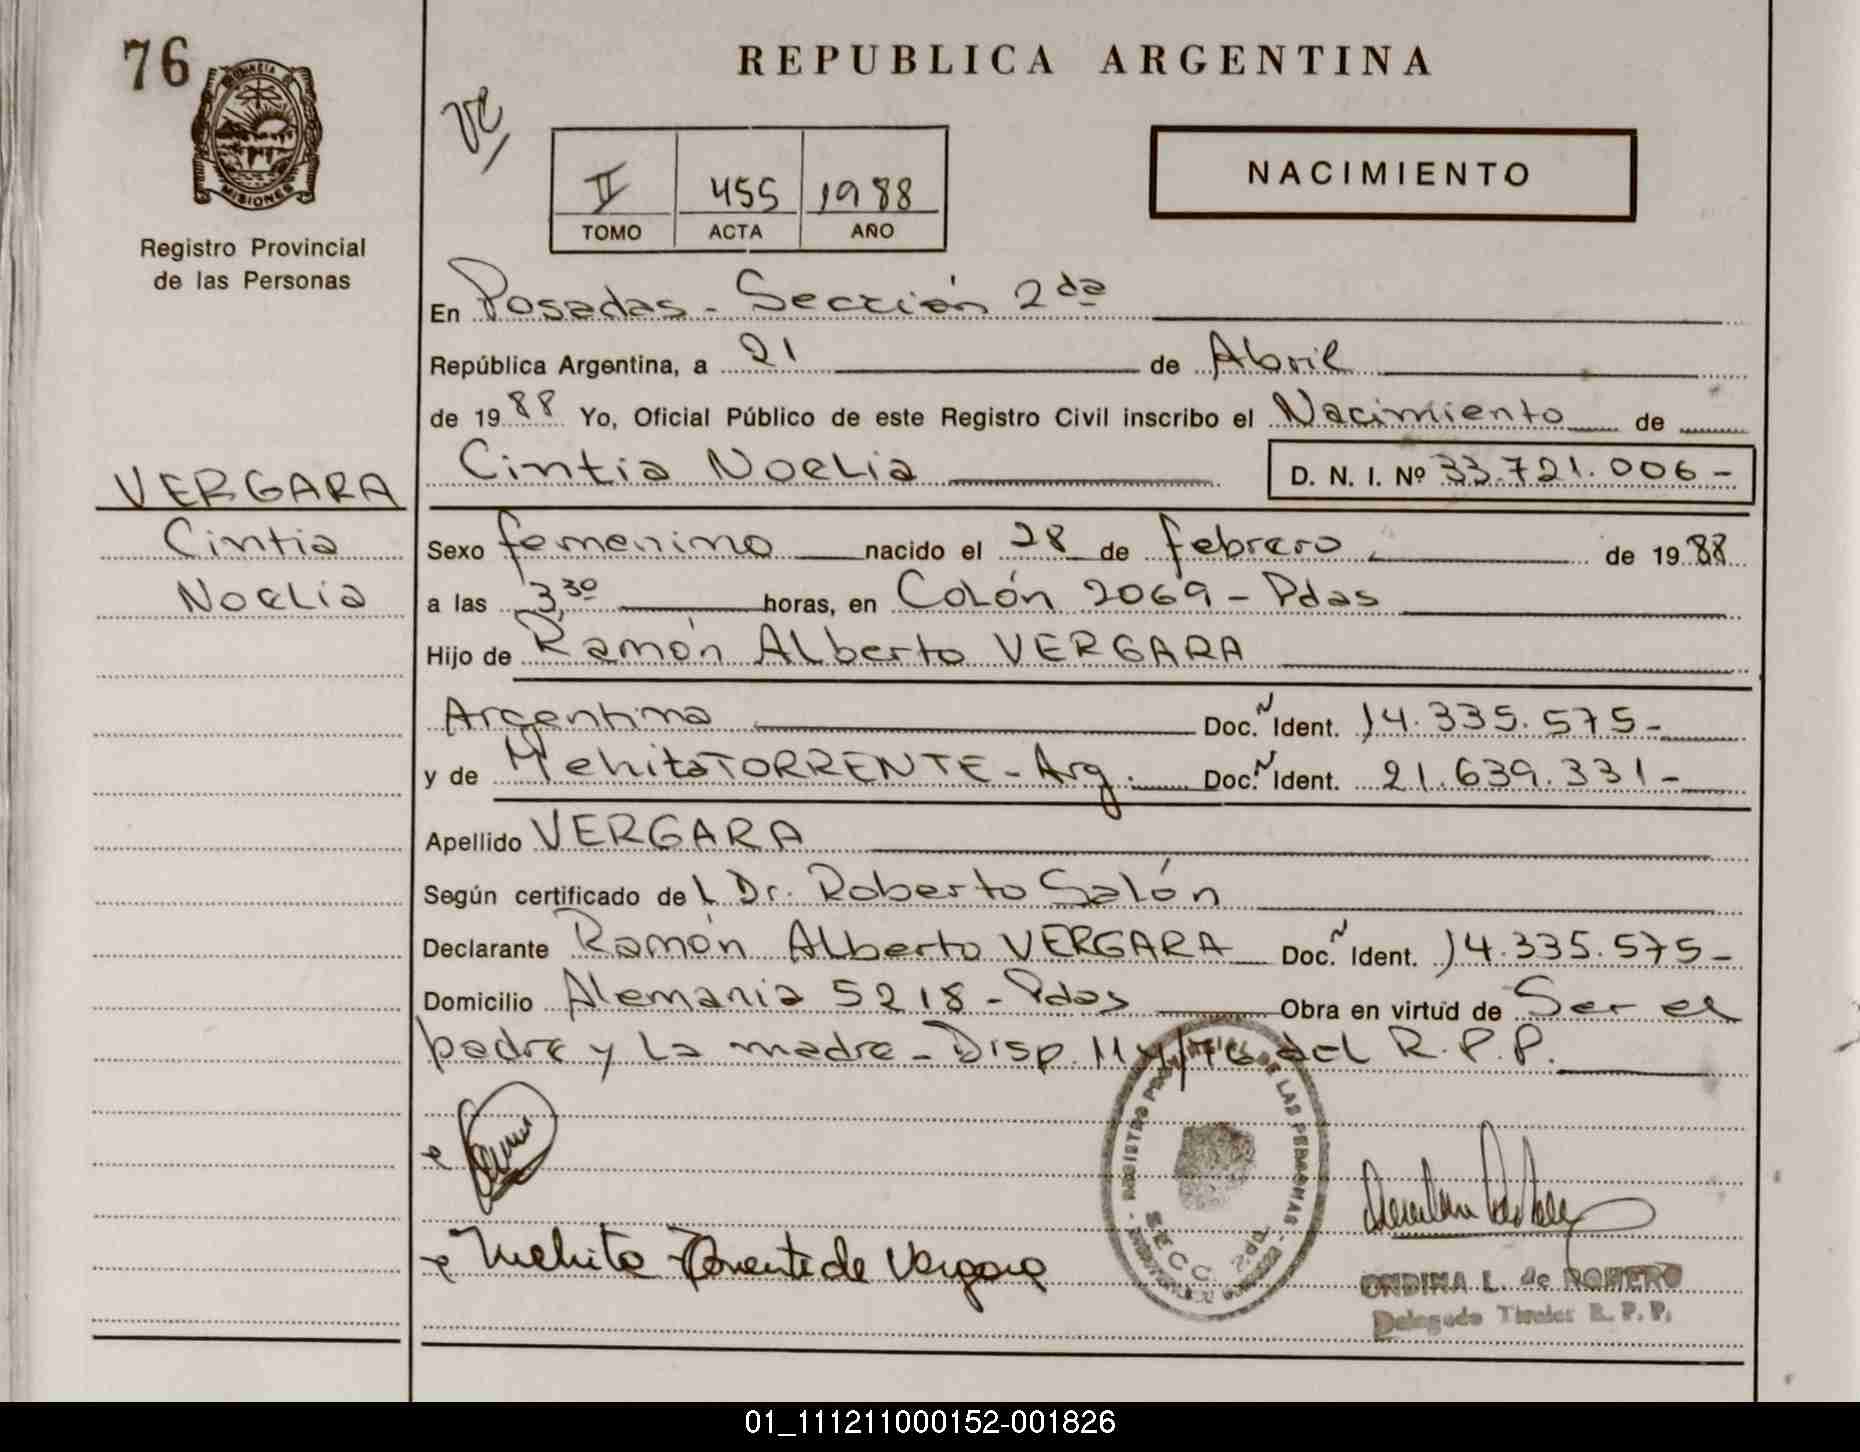 76
PROVINCIA DE
MISIONES
Registro Provincial
de las Personas
REPUBLICA ARGENTINA
NACIMIENTO
II 455 1988
TOMO ACTA AÑO
En Posadas - Sección 2da
República Argentina, a 21 de Abril
de 1988 Yo, Oficial Público de este Registro Civil inscribo el Nacimiento de
Cintia Noelia D. N. I. Nº 33.721.006-
VERGARA
Cintia
Noelia
Sexo femenino nacido el 28 de febrero de 1988
a las 3,30 horas, en Colón 2069 - Pdas
Hijo de Ramón Alberto VERGARA
Argentina Doc. Ident. 14.335.575-
y de Mehita TORRENTE - Arg. Doc. Ident. 21.639.331-
Apellido VERGARA
Según certificado del Dr. Roberto Salón
Declarante Ramón Alberto VERGARA Doc. Ident. 14.335.575-
Domicilio Alemania 5218 - Pdas Obra en virtud de Ser el
padre y la madre - Disp. 114/76 del R.P.P.
Mehita Torrente de Vergara
SECC. 2da
ONDINA L. de ROMERO
Delegado Titular R. P. P.
01_111211000152-001826